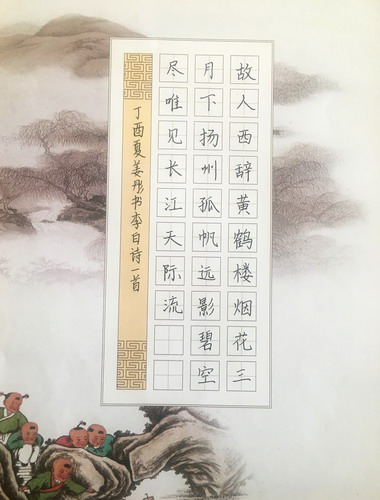 故人西辞黄鹤楼烟花三
月下扬州孤帆远影碧空
尽唯见长江天际流
丁酉夏姜彤书李白诗一首